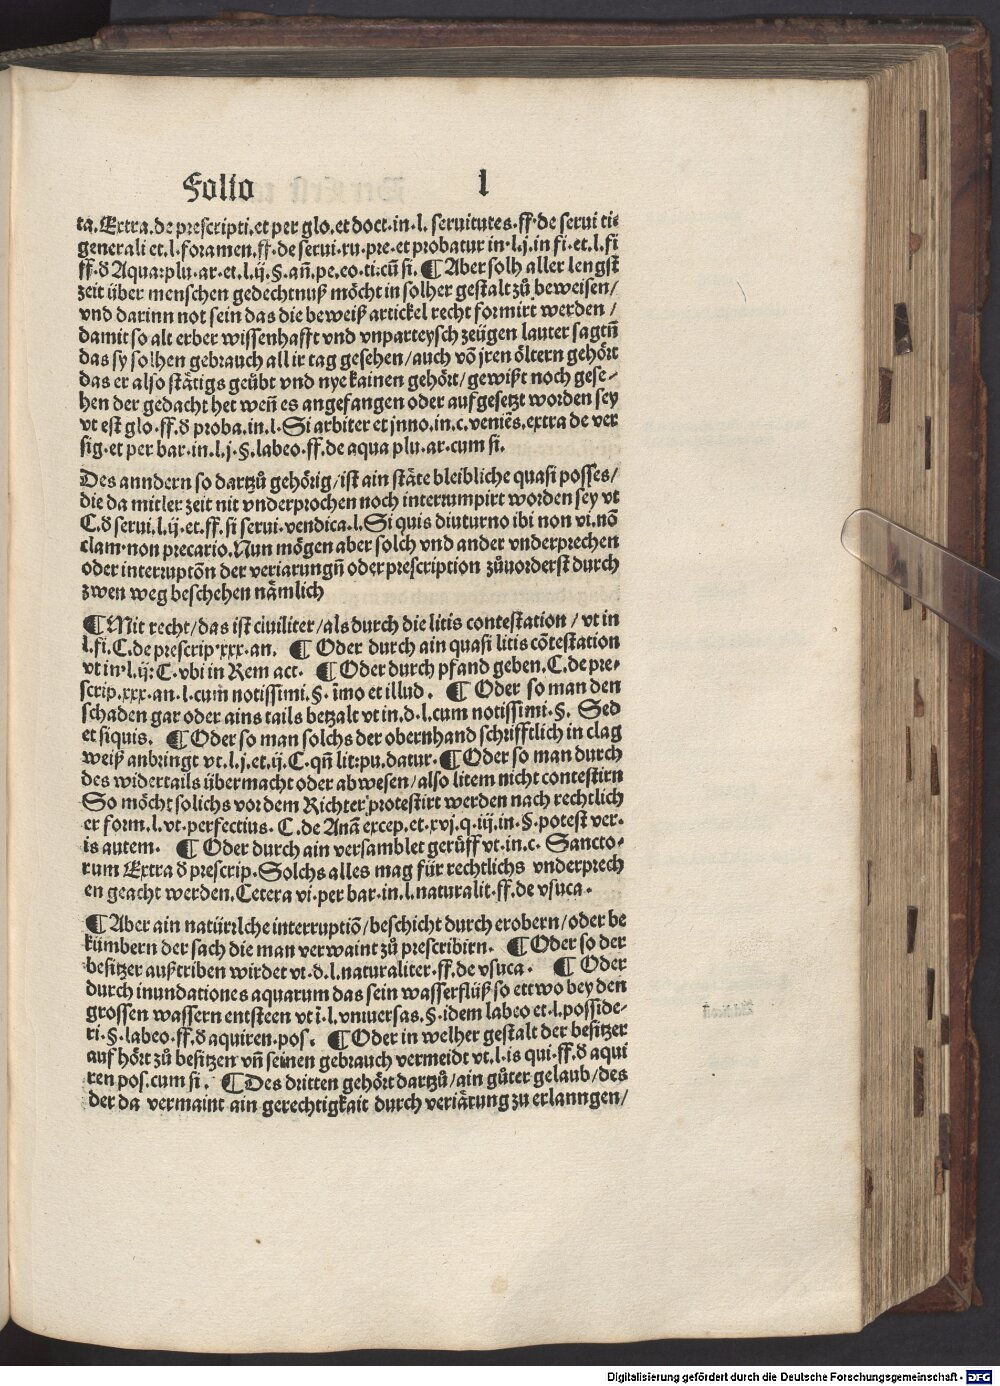 Folio l
ta. Extra. de prescripti. et per glo. et doct. in. l. seruitutes. ff. de serui tis
generali et. l. foramen. ff. de serui. ru. pre. et probatur in. l. j. in fi. et. l. fi
ff. đ Aqua: plu. ar. et. l. ij. §. añ. pe. eo. ti. cū si. ¶ Aber solh aller lengst
zeit über menschen gedechtnuß möcht in solher gestalt zů beweisen/
vnd darinn not sein das die beweiß artickel recht formirt werden/
damit so alt erber wissenhafft vnd vnparteysch zeügen lauter sagtñ
das sy solhen gebrauch all ir tag gesehen/auch võ jren öltern gehört
das er also stätigs geübt vnd nye kainen gehört/gewißt noch gese-
hen der gedacht het weñ es angefangen oder aufgesetzt worden sey
vt est glo. ff. đ proba. in. l. Si arbiter et jnno. in. c. veniēs. extra de ver
sig. et per bar. in. l. j. §. labeo. ff. de aqua plu. ar. cum si.
Des anndern so dartzů gehörig/ist ain stäte bleibliche quasi posses/
die da mitler zeit nit vnderprochen noch interrumpirt worden sey vt
C. đ serui. l. ij. et. ff. si serui. vendica. l. Si quis diuturno ibi non vi. nō
clam. non precario. Nun mögen aber solch vnd ander vnderprechen
oder interruptōn der veriarungñ oder prescription zůuorderst durch
zwen weg beschehen nämlich
¶ Mit recht/das ist ciuiliter/als durch die litis contestation/vt in
l. fi. C. de prescrip. xxx. an. ¶ Oder durch ain quasi litis cōtestation
vt in. l. ij: C. vbi in Rem act. ¶ Oder durch pfand geben. C. de pre-
scrip. xxx. an. l. cum notissimi. §. īmo et illud. ¶ Oder so man den
schaden gar oder ains tails betzalt vt in. d. l. cum notissimi. §. Sed
et siquis. ¶ Oder so man solchs der obernhand schrifftlich in clag
weiß anbringt vt. l. j. et. ij. C. qñ lit: pu. datur. ¶ Oder so man durch
des widertails übermacht oder abwesen/also litem nicht contestirn
So möcht solichs vor dem Richter protestirt werden nach rechtlich
er form. l. vt. perfectius. C. de Anā excep. et. xvj. q. iij. in. §. potest ver-
is autem. ¶ Oder durch ain versamblet gerüff vt. in. c. Sancto-
rum Extra đ prescrip. Solchs alles mag für rechtlichs vnderprech
en geacht werden. Cetera vi. per bar. in. l. naturalit. ff. de vsuca.
¶ Aber ain natürlche interruptiō/beschicht durch erobern/oder be
kümbern der sach die man verwaint zů prescribirn. ¶ Oder so der
besitzer außtriben wirdet vt. d. l. naturaliter. ff. de vsuca. ¶ Oder
durch inundationes aquarum das sein wasserflüß so ettwo bey den
grossen wassern entsteen vt ī. l. vniuersas. §. idem labeo et. l. posside-
ri. §. labeo. ff. đ aquiren. pos. ¶ Oder in welher gestalt der besitzer
auf hört zů besitzen vñ seinen gebrauch vermeidt vt. l. is qui. ff. đ aqui
ren pos. cum si. ¶ Des dritten gehört dartzů/ain gůter gelaub/des
der da vermaint ain gerechtigkait durch veriärung zu erlanngen/
Digitalisierung gefördert durch die Deutsche Forschungsgemeinschaft - DFG